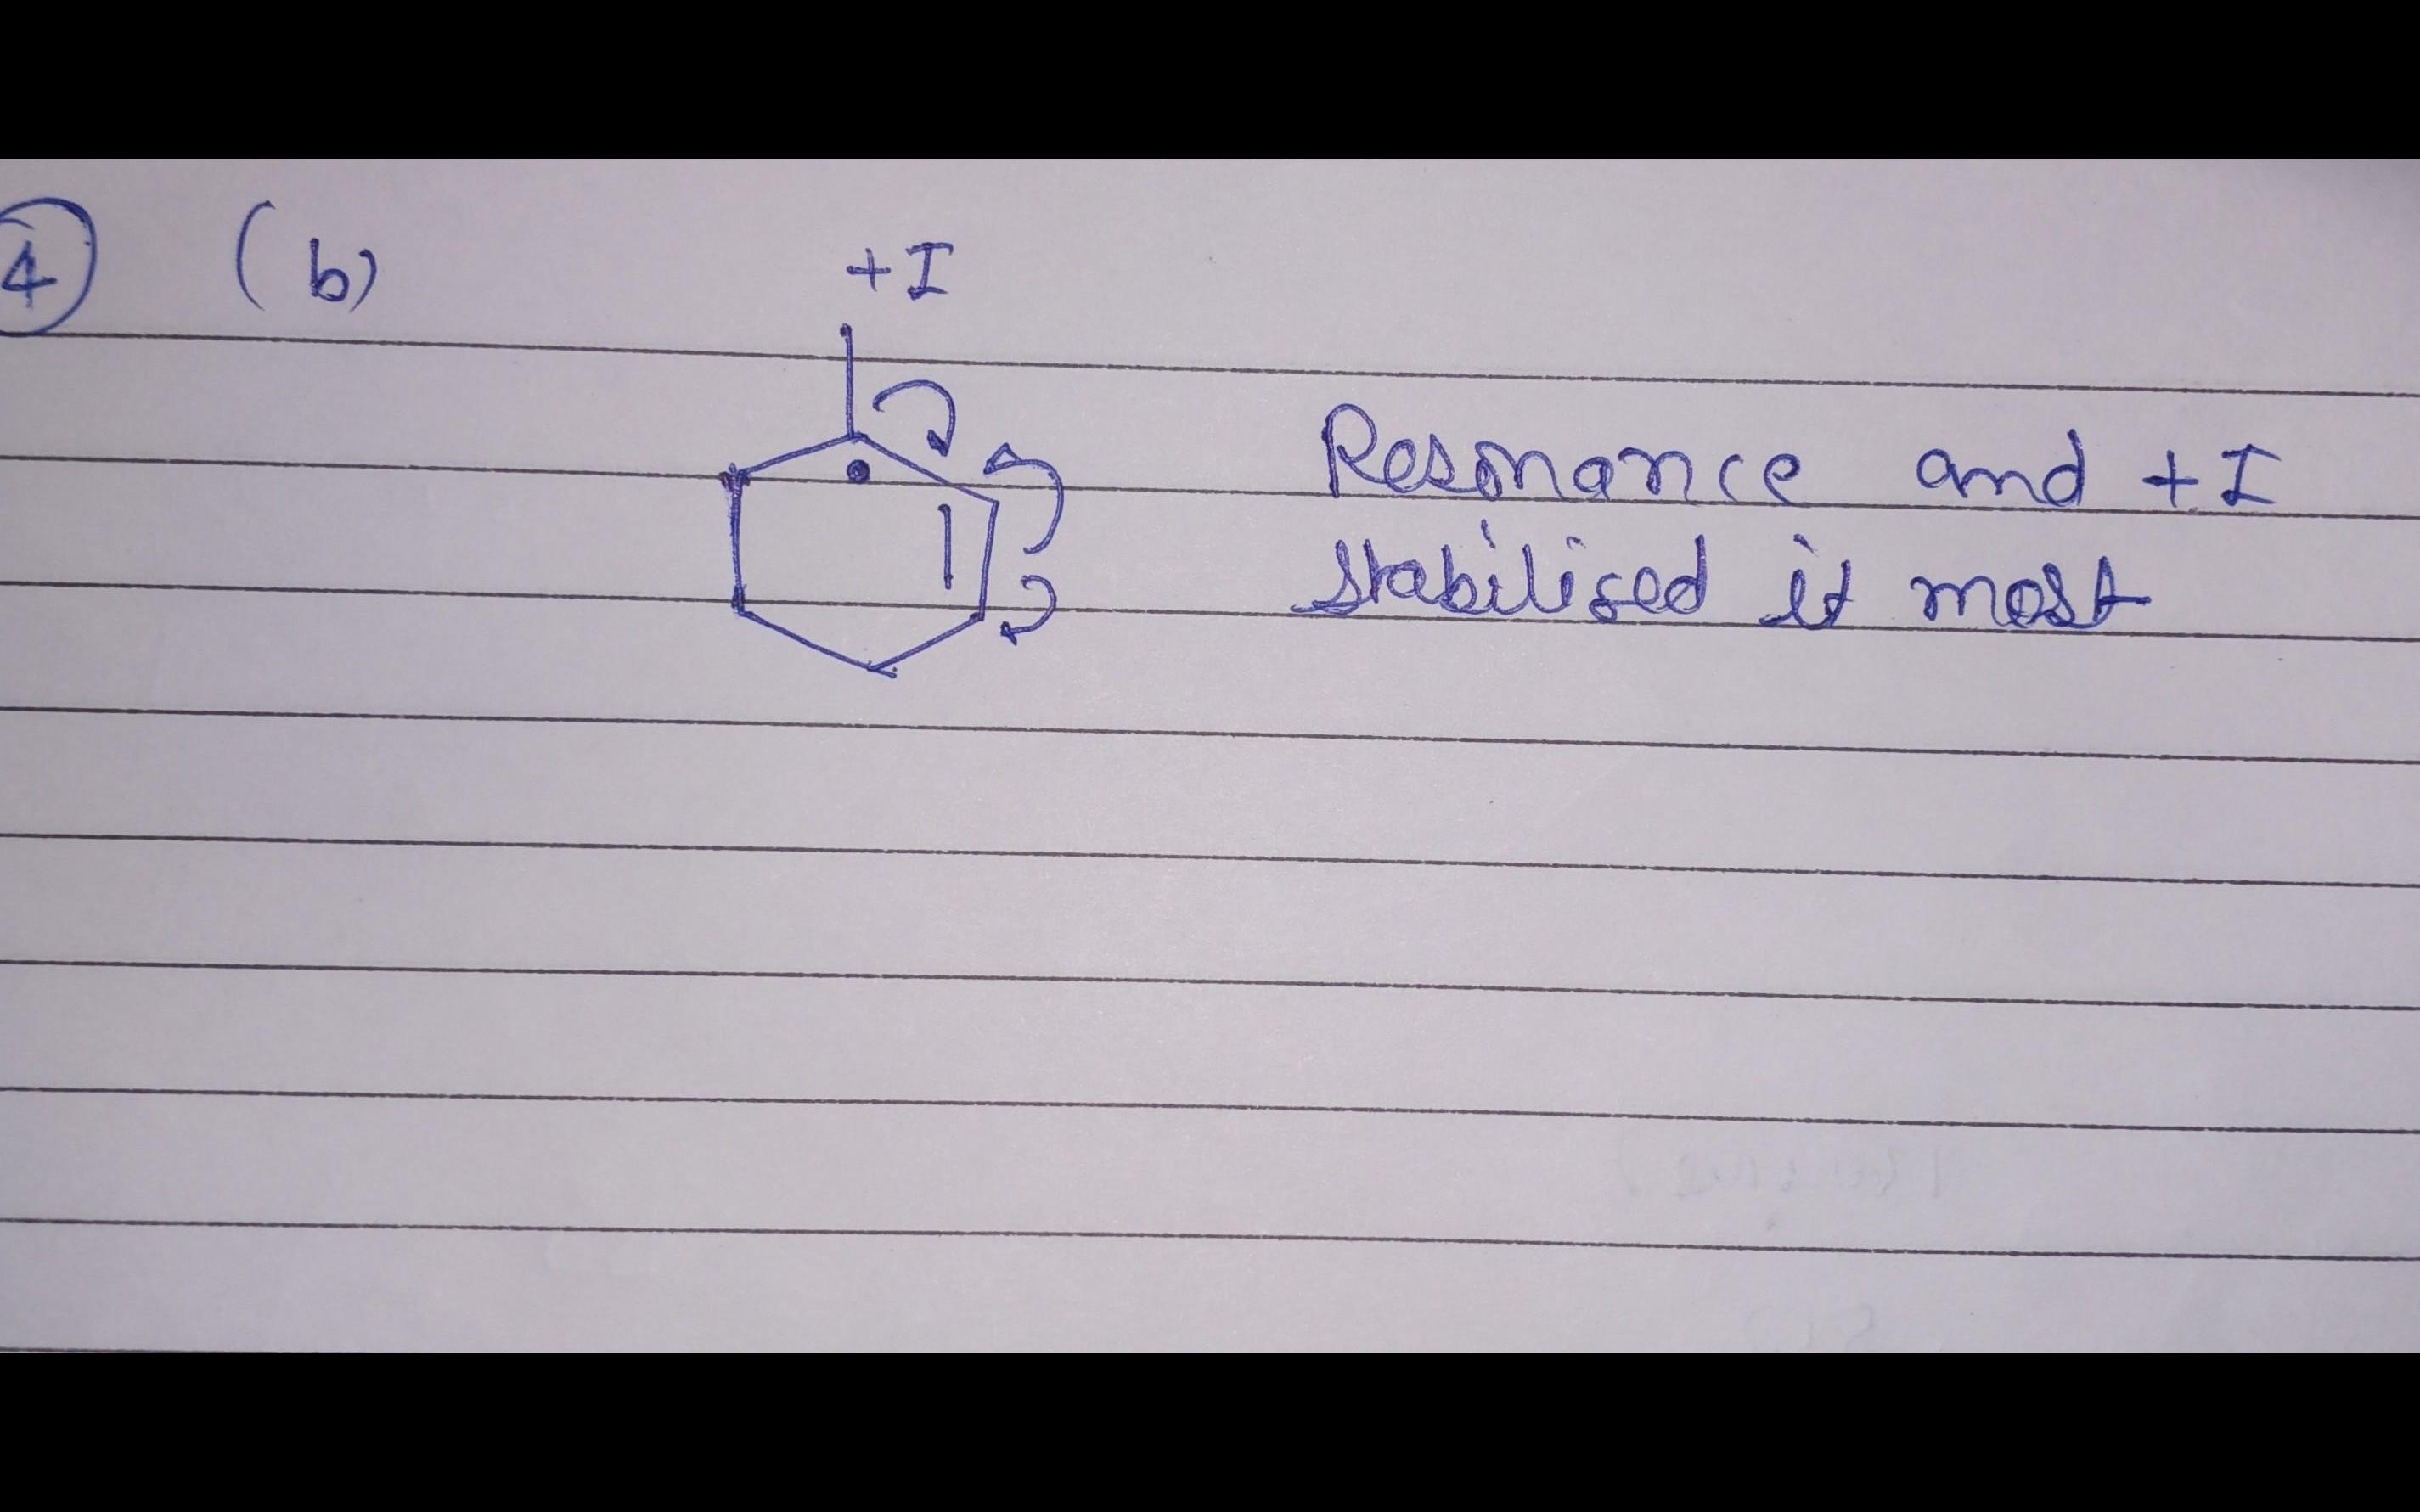 4 (b)
+I
Resonance and +I
stabilised it most